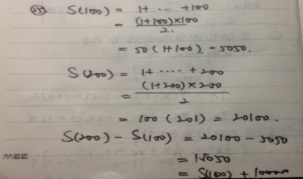 S(100) = 1+ ... +100
= (1+100)×100
2.
= 50(1+100) - 5050.
S(200) = 1+ ---- +200
= (1+200)×200
2
= 100(201) = 20100.
S(200) - S(100) = 20100 - 5050
= 15050
= S(100) + 10000